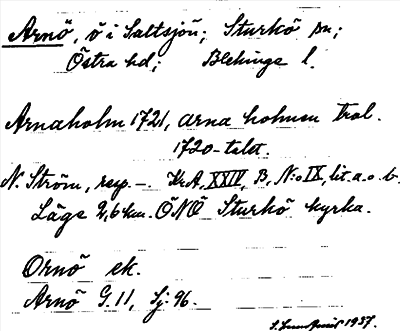 Arnö, ö i Saltsjön; Sturkö sn;
Östra hd; Blekinge l.
Arnaholm 1721, arna holmen trol.
1720-talet.
N. Ström, resp. –. Kr. A, XXIV, B, N:o IX, lit. a. o. b.
Läge 2,6 km. ÖNÖ Sturkö kyrka.
Ornö ek.
Arnö G. 11, Sj. 96.
1937.